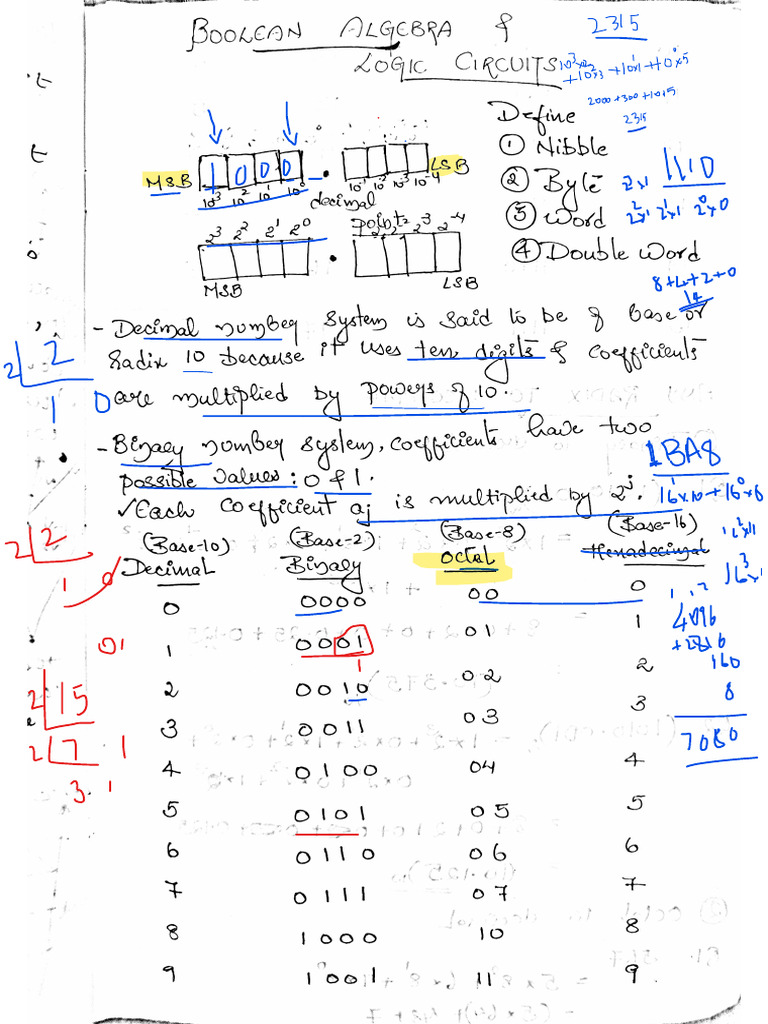 BOOLEAN ALGEBRA &
LOGIC CIRCUITS
2315
10³x2
+10²x3 +10¹x1 +10⁰x5
2000+300+10+5
2315
Define
① Nibble
② Byte
③ Word
④ Double Word
1110
2³x1
2²x1 2¹x1 2⁰x0
8+4+2+0
14
MSB 1 0 0 0 . LSB
10³ 10² 10¹ 10⁰ decimal 10⁻¹ 10⁻² 10⁻³ 10⁻⁴
2³ 2² 2¹ 2⁰ point 2⁻¹ 2⁻² 2⁻³ 2⁻⁴
MSB . LSB
- Decimal number system is said to be of base or
radix 10 because it uses ten digits & coefficients
are multiplied by powers of 10.
- Binary number system, coefficients have two
possible values: 0 & 1.
✓ Each coefficient aj is multiplied by 2ʲ.
2 2
1 0
1BA8
16¹x10+16⁰x8
16²x11
16³x1
4096
+2816
160
8
7080
(Base-10) (Base-2) (Base-8) (Base-16)
Decimal Binary Octal Hexadecimal
0 0000 00 0
1 0001 01 1
2 0010 02 2
3 0011 03 3
4 0100 04 4
5 0101 05 5
6 0110 06 6
7 0111 07 7
8 1000 10 8
9 1001 11 9
2 2
1 0
01
1
2 15
2 7 1
3 1